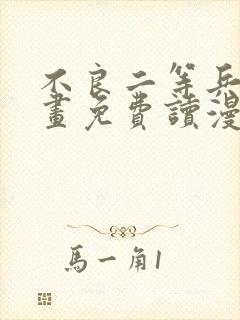 不良二等兵
畫免費讀漫
馬一角1